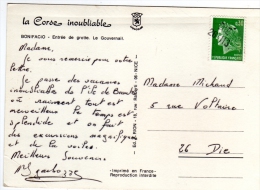 la Corse inoubliable
BONIFACIO - Entrée de grotte. Le Gouvernail.
Madame,
je vous remercie pour votre
lettre.
Je passe des vacances
inoubliables de l'île de Beauté
où vraiment tout est
merveilleux le temps est
splendide et on fait
des excursions magnifiques
et de la voile.
Meilleurs Souvenirs
Madame Michaud
5 rue Voltaire
26 Die
- Imprimé en France -
Reproduction interdite